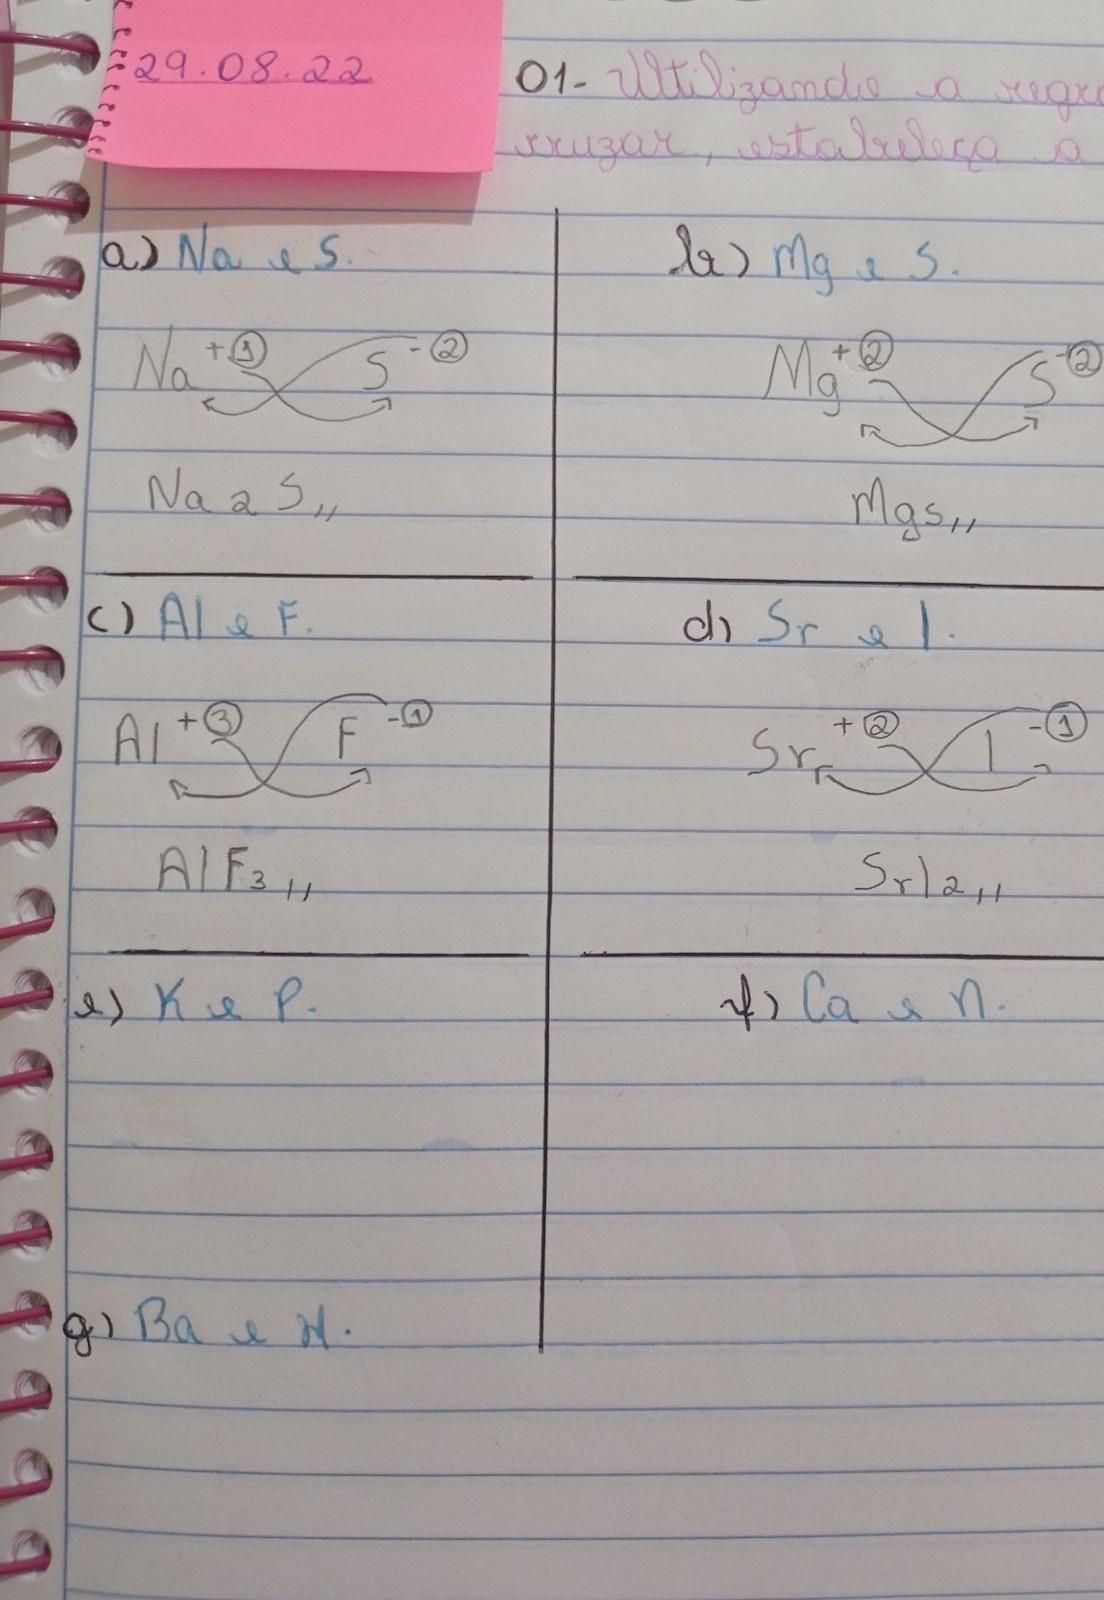 29.08.22
01- Utilizando a regra
cruzar, estabeleça a
a) Na e S.
Na +1 S -2
Na2S,,
b) Mg e S.
Mg +2 S -2
Mgs,,
c) Al e F.
Al +3 F -1
AlF3,,
d) Sr e I.
Sr +2 I -1
SrI2,,
e) K e P.
f) Ca e N.
g) Ba e H.